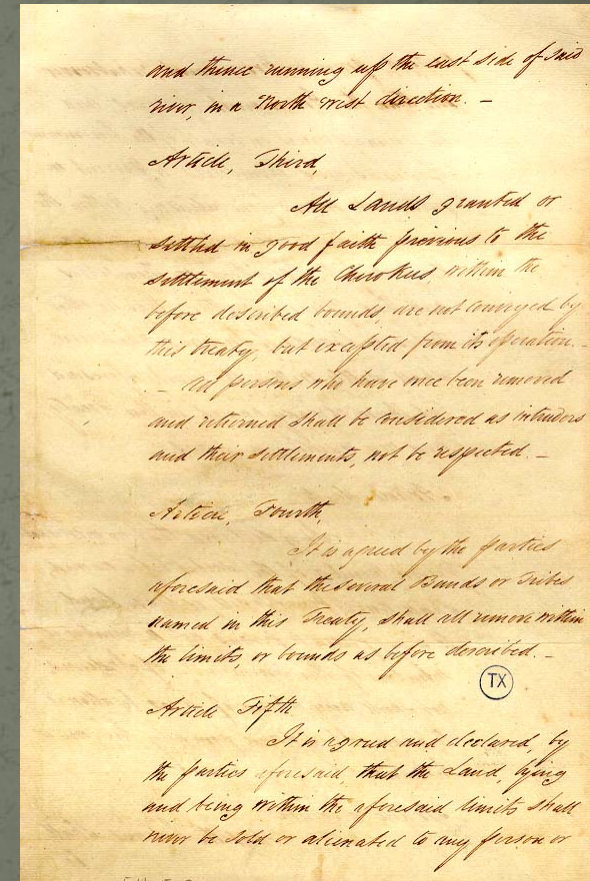 and thence running up the east side of said
river, in a North west direction. –
Article, Third,
All Lands granted or
settled in good faith previous to the
settlement of the Cherokees, within the
before described bounds, are not conveyed by
this treaty, but excepted from its operation. –
– All persons who have once been removed
and returned shall be considered as intruders
and their settlements, not be respected. –
Article, Fourth,
It is agreed by the parties
aforesaid that the several Bands or Tribes
named in this Treaty, shall all remove within
the limits, or bounds as before described. –
TX
Article Fifth
It is agreed and declared, by
the parties aforesaid, that the Land, lying
and being within the aforesaid limits shall
never be sold or alienated to any person or